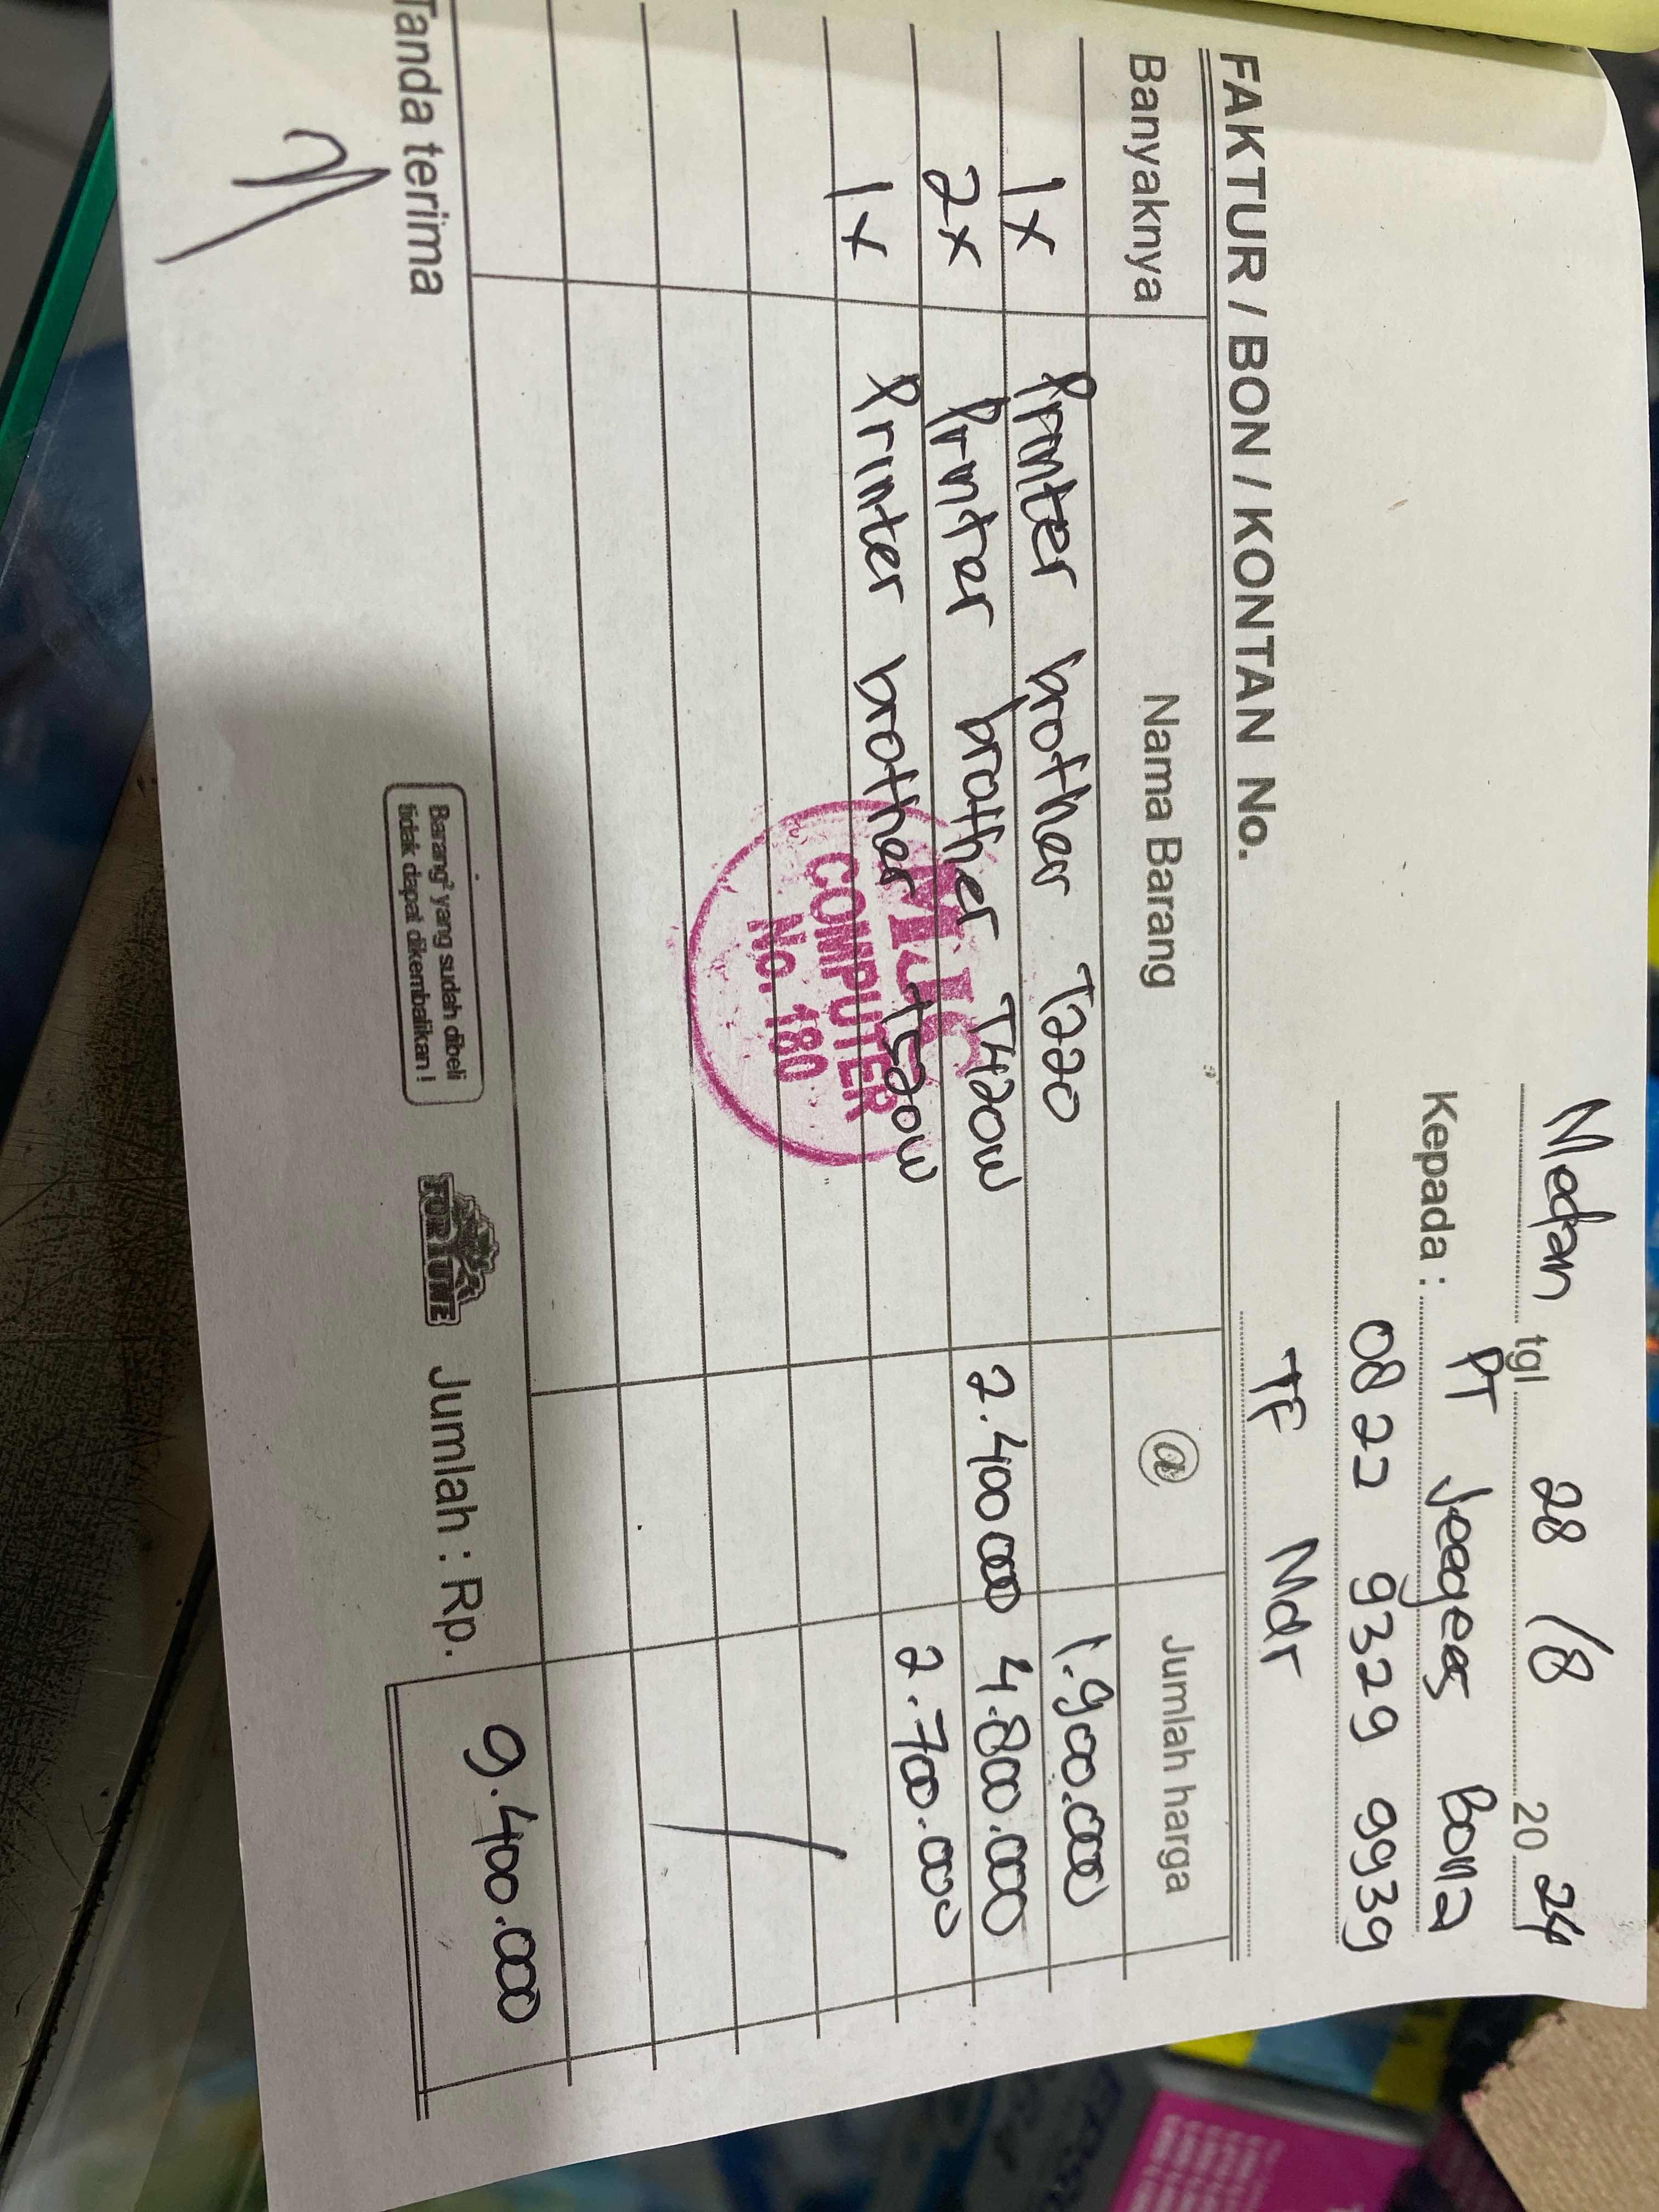 Medan tgl 28 /8 20 24
Kepada : PT Jeeges Bona
0822 9329 9939
TF Mdr
FAKTUR / BON / KONTAN No.
Banyaknya Nama Barang @ Jumlah harga
1x Printer brother T220 1.900.000
2x Printer brother T420W 2.400000 4.800.000
1x Printer brother T520W 2.700.000
COMPUTER
No. 180
Tanda terima
Barang² yang sudah dibeli
tidak dapat dikembalikan !
FORTUNE
Jumlah : Rp. 9.400.000